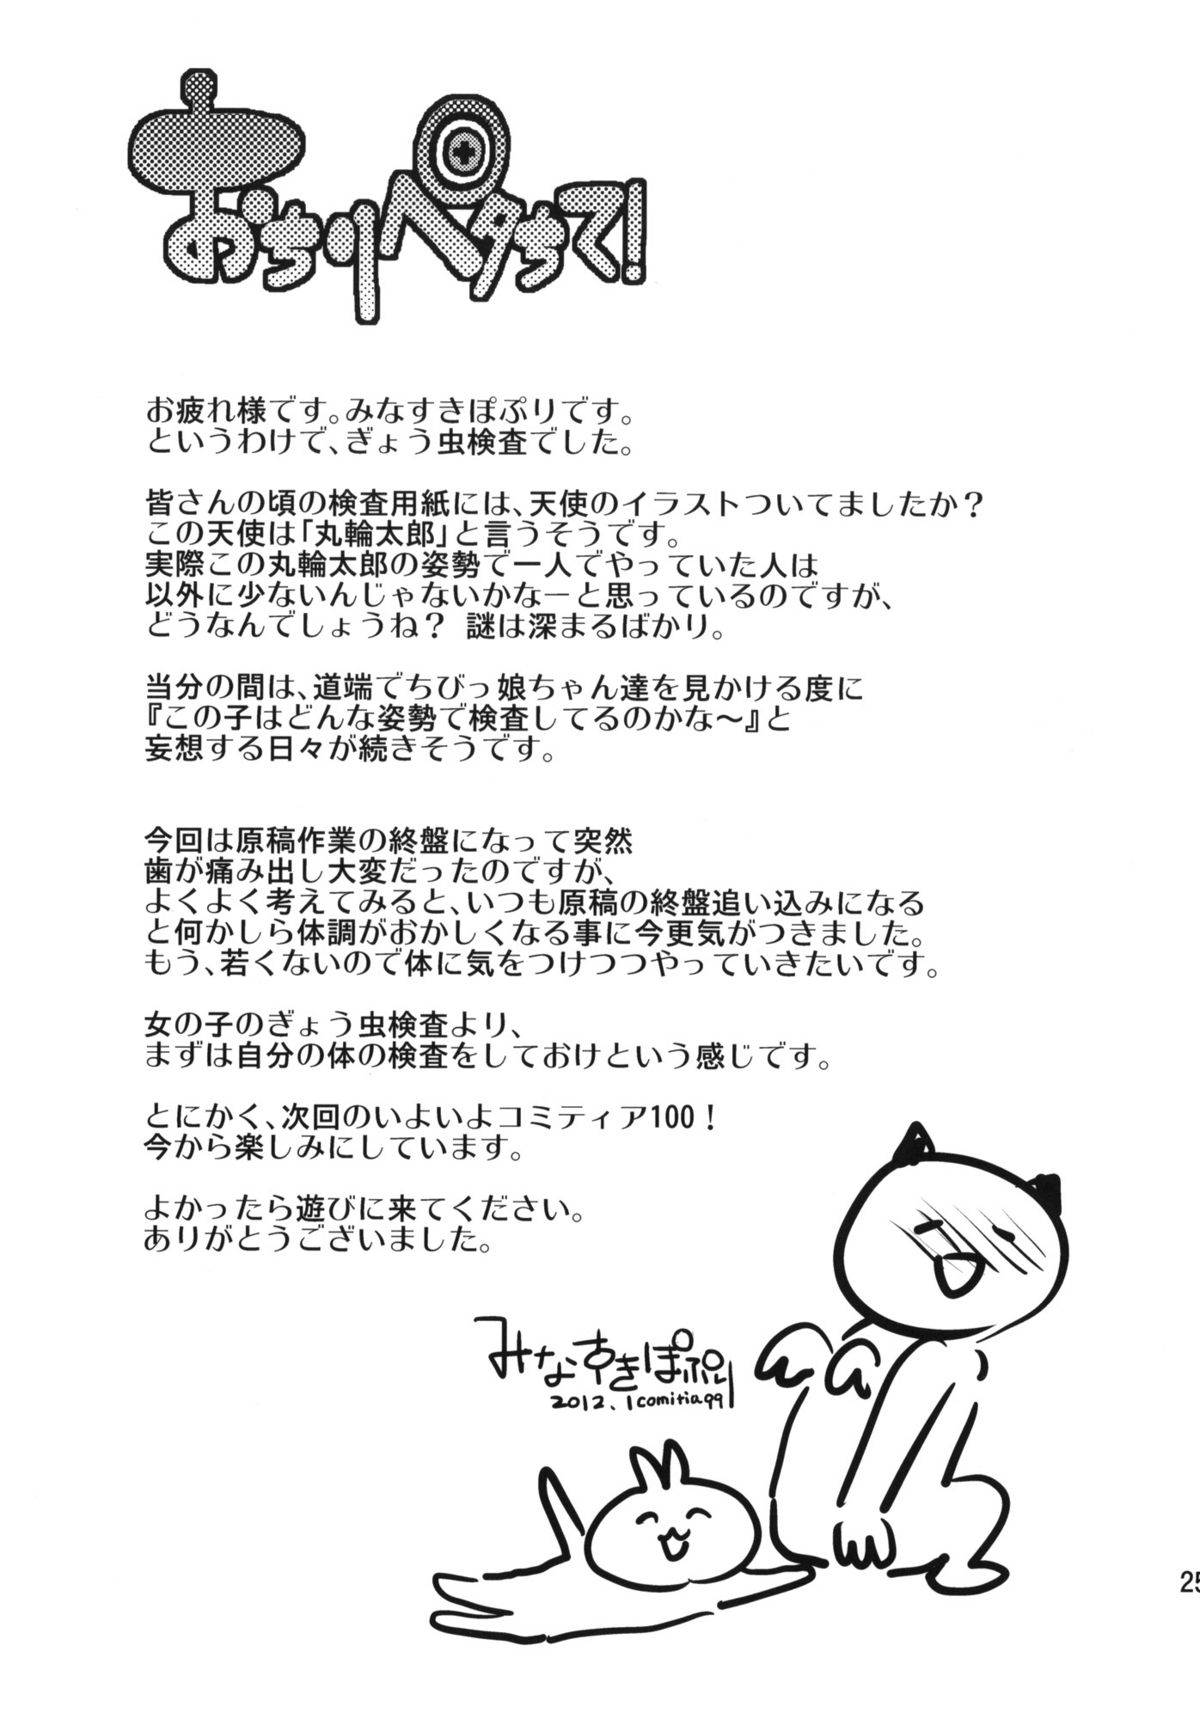 おちりペタちて!
お疲れ様です。みなすきぽぷりです。
というわけで、ぎょう虫検査でした。
皆さんの頃の検査用紙には、天使のイラストついてましたか？
この天使は「丸輪太郎」と言うそうです。
実際この丸輪太郎の姿勢で一人でやっていた人は
以外に少ないんじゃないかなーと思っているのですが、
どうなんでしょうね？ 謎は深まるばかり。
当分の間は、道端でちびっ娘ちゃん達を見かける度に
『この子はどんな姿勢で検査してるのかな～』と
妄想する日々が続きそうです。
今回は原稿作業の終盤になって突然
歯が痛み出し大変だったのですが、
よくよく考えてみると、いつも原稿の終盤追い込みになる
と何かしら体調がおかしくなる事に今更気がつきました。
もう、若くないので体に気をつけつつやっていきたいです。
女の子のぎょう虫検査より、
まずは自分の体の検査をしておけという感じです。
とにかく、次回のいよいよコミティア100！
今から楽しみにしています。
よかったら遊びに来てください。
ありがとうございました。
みなすきぽぷり
2012.1comitia99
25